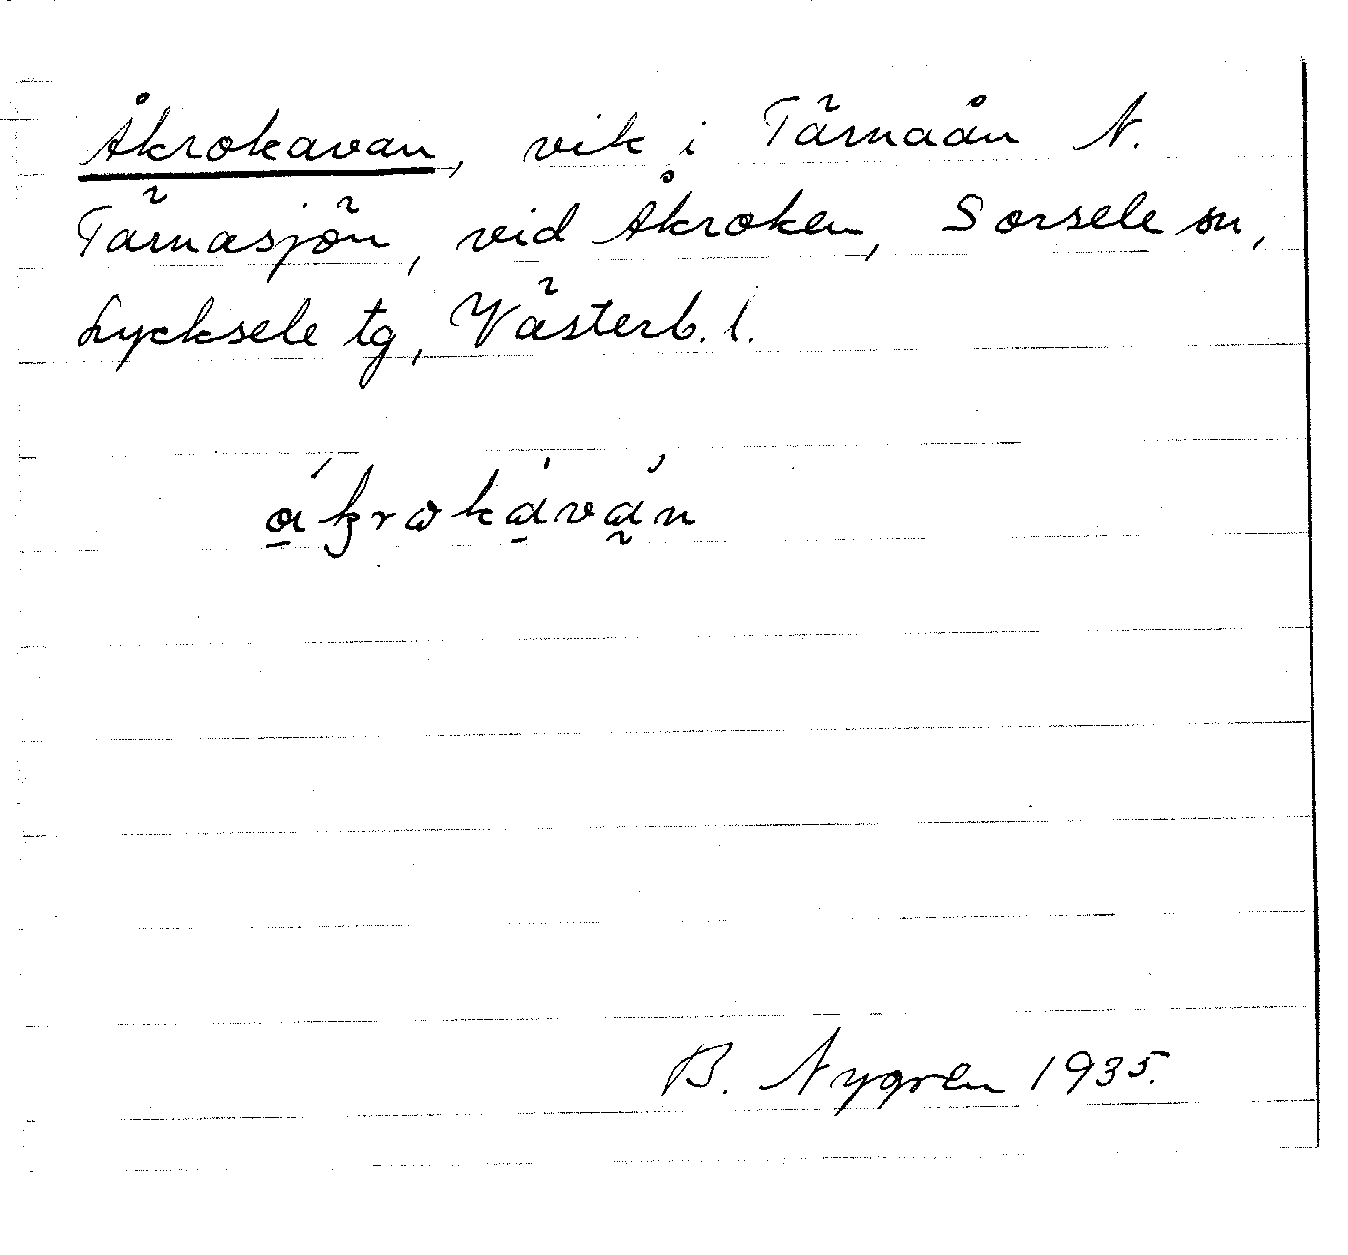 Åkrokavan, vik i Tärnaån N.
Tärnasjön, vid Åkroken, Sorsele sn,
Lycksele tg, Västerb. l.
åkrokavan
B. Nygren 1935.